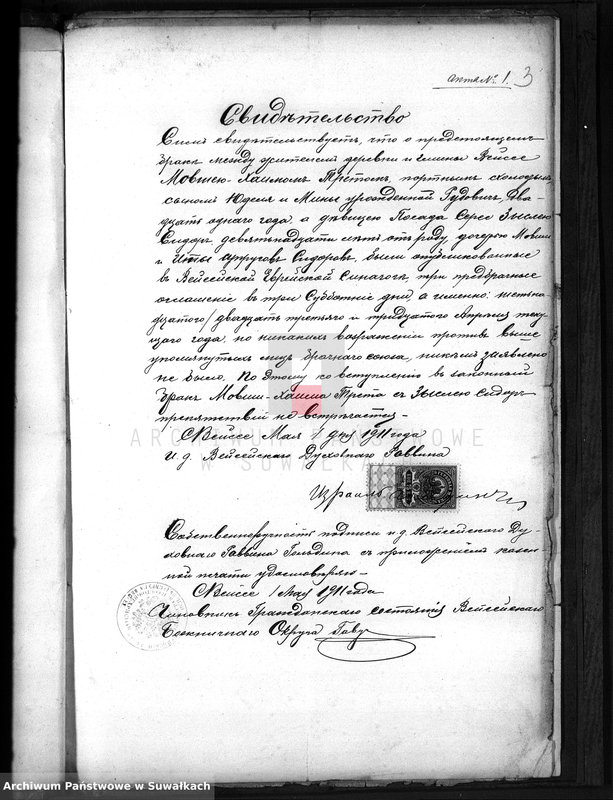 Акта № 1. 3
Свидѣтельство
Симъ свидѣтельствуетъ, что о предстоящемъ
бракѣ между жителемъ деревни и гмины Вейссе
Мовшею-Хаимомъ Третомъ, портнымъ холостымъ,
сыномъ Юделя и Мины урожденной Гудовичъ, два-
дцать одного года, а дѣвицею Посада Серее Зыслею
Сидоръ, девятнадцати лѣтъ отъ роду, дочерью Мовши
и Итты супруговъ Сидоровъ, были опубликованные
въ Вейсейской Еврейской Синагогѣ три предбрачные
оглашение въ три Субботніе дни, а именно: шестна-
дцатого, двадцать третьяго и тридцатого Апрѣля теку-
щаго года, но никакихъ возраженій противъ выше
упомянутыхъ лицъ брачнаго союза, никѣмъ заявлено
не было. По этому ко вступленію въ законный
бракъ Мовши-Хаима Трета съ Зыслею Сидоръ
препятствій не встрѣчается –
С. Вейссе Мая 1 дня 1911 года
И. д. Вейсейскаго Духовнаго Раввина
Израиль
Собственноручность подписи и. д. Вейсейскаго Ду-
ховнаго Раввина Гольдина съ приложеніемъ казен-
ной печати удостовѣряю –
С. Вейссе 1 Мая 1911 года
Чиновникъ Гражданскаго состоянія Вейсейскаго
Божничнаго Округа
ARCHIWUM PAŃSTWOWE
W SUWAŁKACH
Archiwum Państwowe w Suwałkach